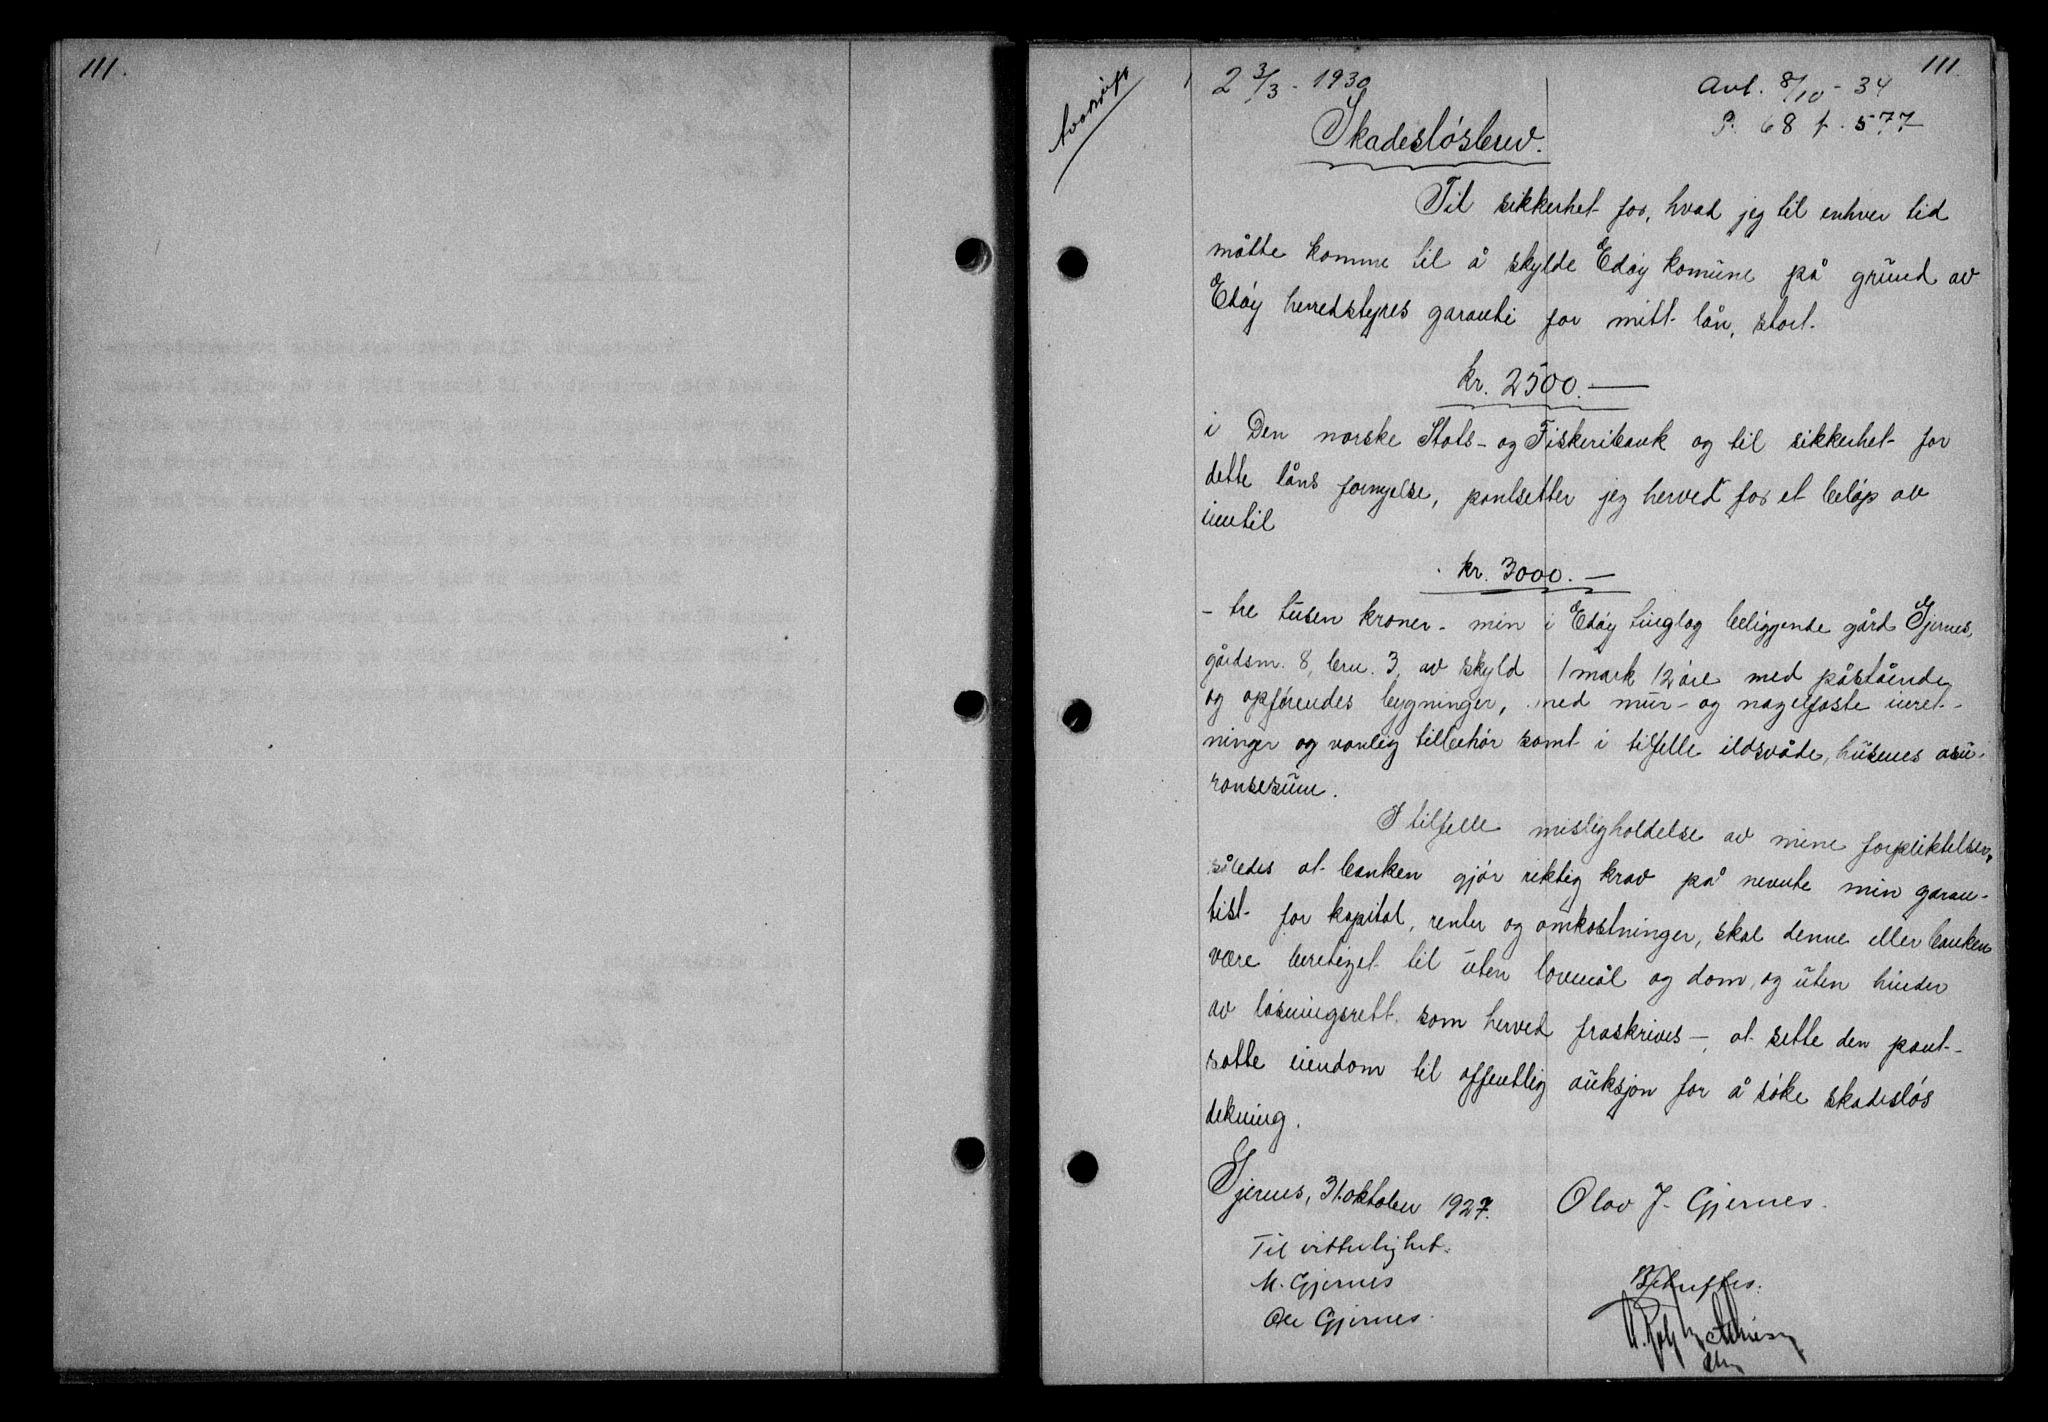 111.
111.
Avskrift
2 3/3 - 1930
Avl. 8/10 - 34
P. 68 f. 577
Skadesløsbrev.
Til sikkerhet for, hvad jeg til enhver tid
måtte komme til å skylde Edøy komune på grund av
Edøy herredstyres garanti for mitt lån, stort
kr. 2500.—
i Den norske Stats- og Fiskeribank og til sikkerhet for
dette låns fornyelse, pantsetter jeg herved for et beløp av
inntil
kr. 3000.—
- tre tusen kroner - min i Edøy tinglag beliggende gård Gjernes,
gårdsnr. 8, brn. 3, av skyld 1 mark 12 øre med påstående
og opførendes bygninger, med mur- og nagelfaste innret-
ninger og vanlig tilbehør samt i tilfelle ildsvåde, husenes asu-
ransesum.
I tilfelle misligholdelse av mine forpliktelser,
således at banken gjør riktig krav på nevnte min garan-
tist for kapital, renter og omkostninger, skal denne eller banken
være berettiget til uten lovmål og dom, og uten hinder
av løsningsrett som herved fraskrives —, at sette den pant-
satte eiendom til offentlig auksjon for å søke skadesløs
dekning.
Gjernes, 31 oktober 1927.
Olav J. Gjernes.
Til vitterlighet:
M. Gjernes
Ole Gjernes.
Bekreftes: